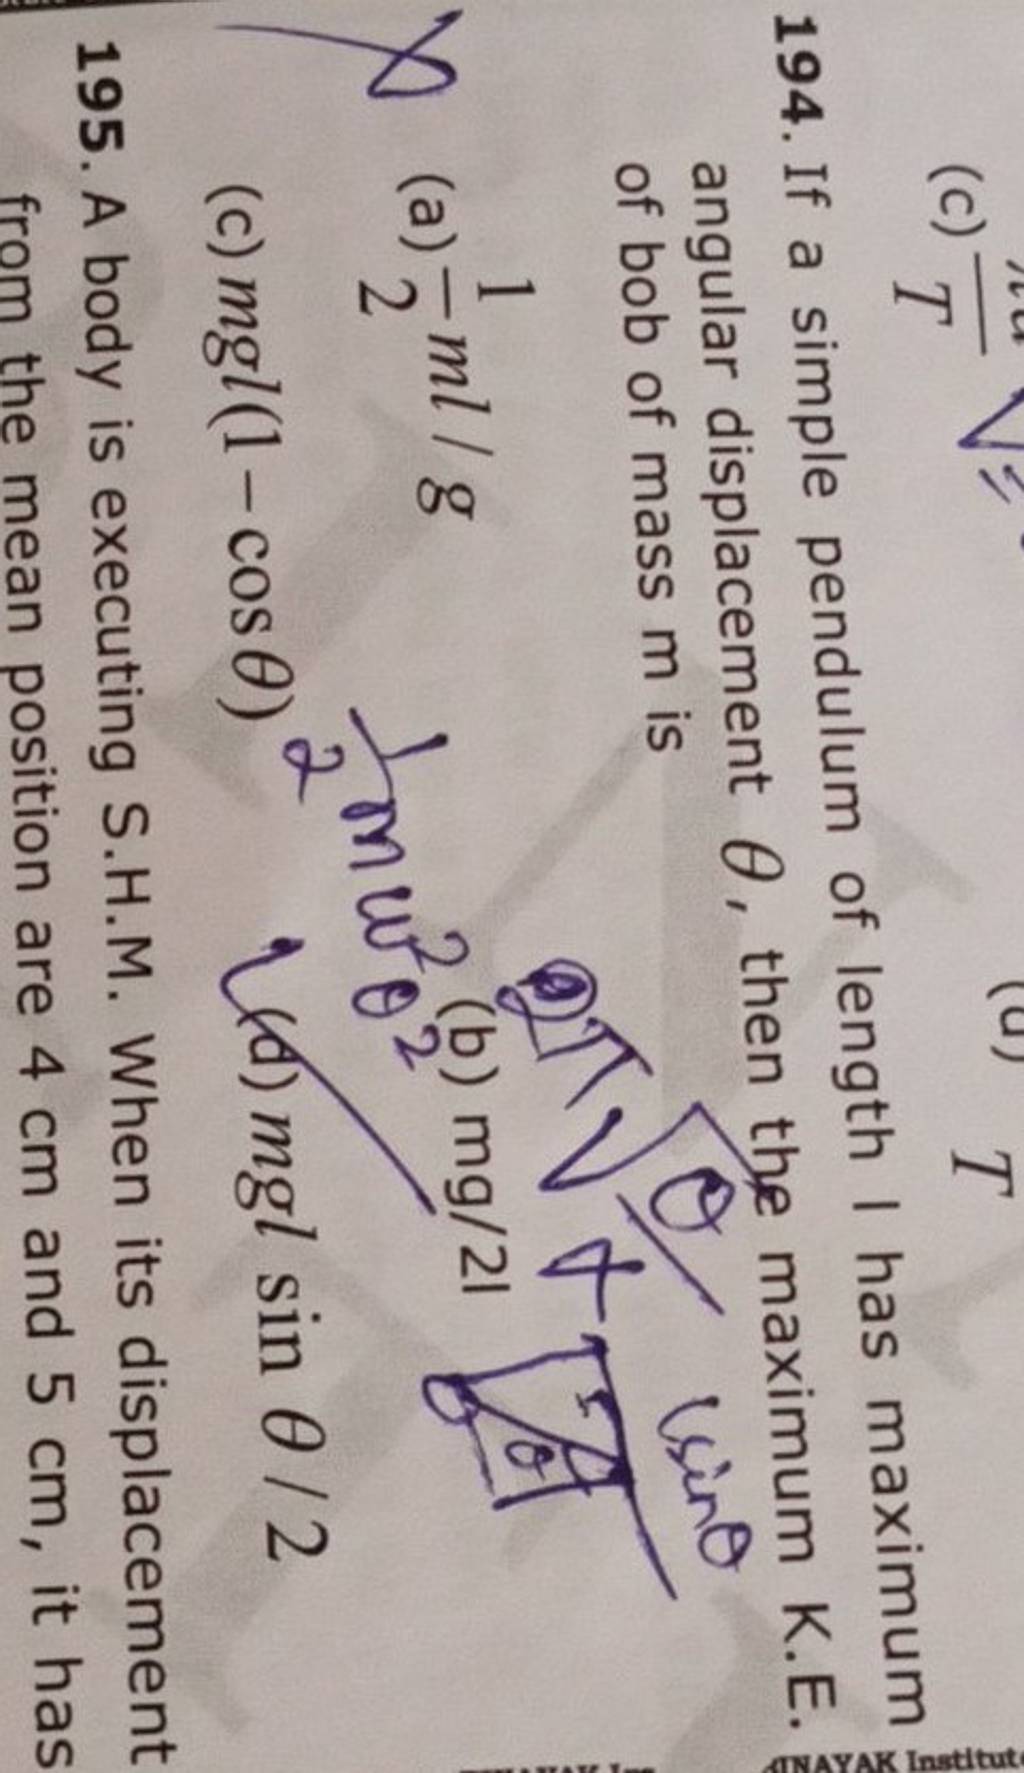 (c) T
(d) T
194. If a simple pendulum of length l has maximum
angular displacement θ, then the maximum K.E.
of bob of mass m is
(a) 1/2 ml / g
(b) mg/2l
(c) mgl(1 − cos θ)
(d) mgl sin θ / 2
1/2 m w² θ²
2π √
lsinθ
θ
195. A body is executing S.H.M. When its displacement
from the mean position are 4 cm and 5 cm, it has
INAYAK Institute